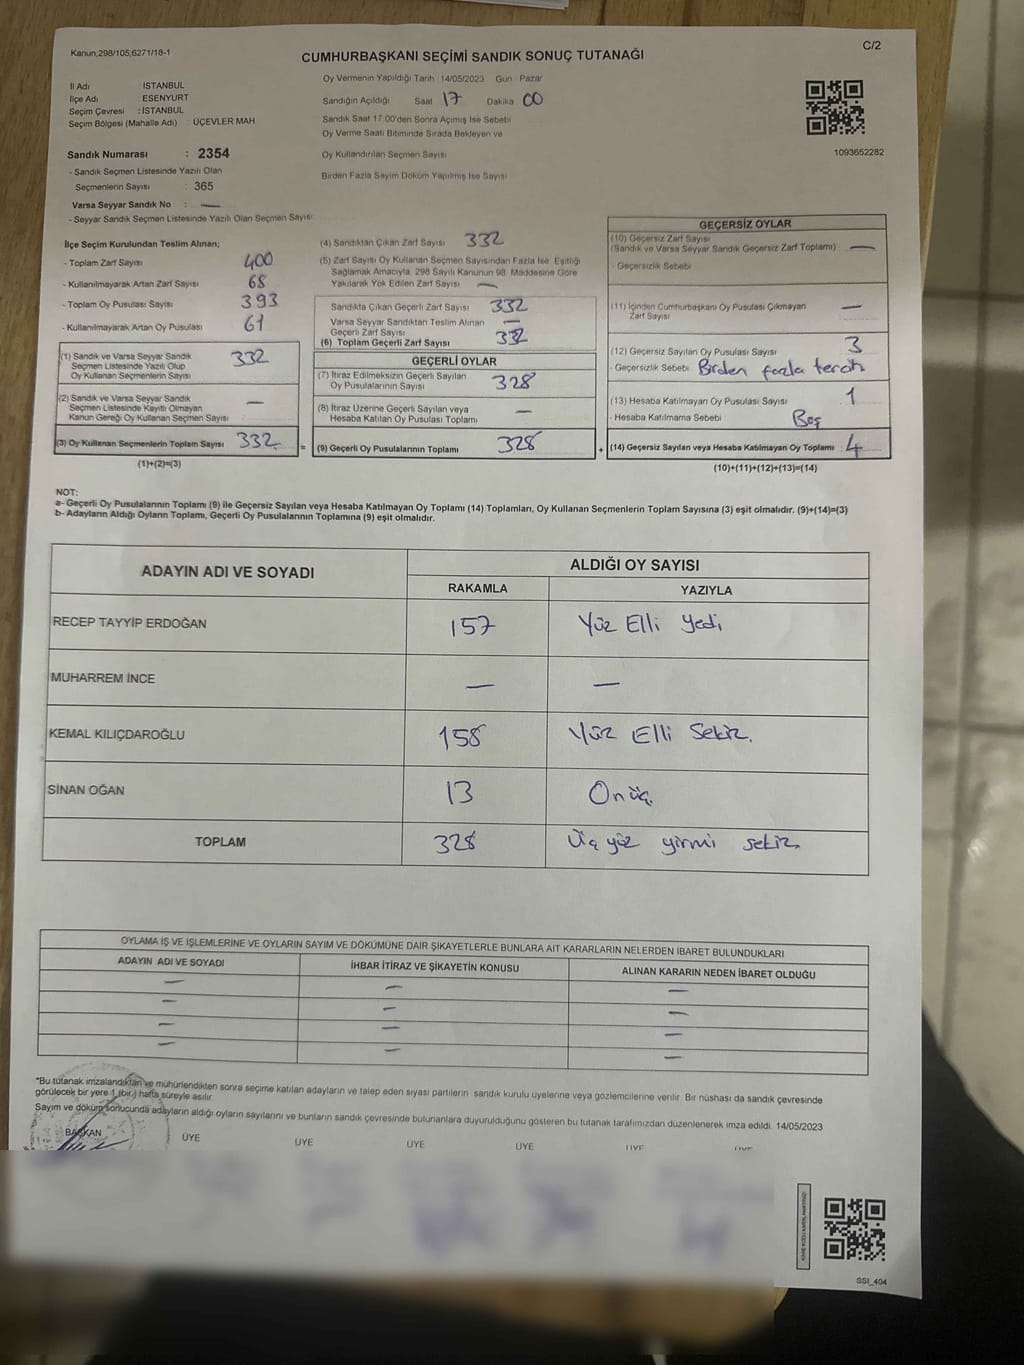 Kanun,298/105,6271/18-1
C/2
CUMHURBAŞKANI SEÇİMİ SANDIK SONUÇ TUTANAĞI
İl Adı İSTANBUL
İlçe Adı ESENYURT
Seçim Çevresi : İSTANBUL
Seçim Bölgesi (Mahalle Adı) : ÜÇEVLER MAH
Sandık Numarası : 2354
- Sandık Seçmen Listesinde Yazılı Olan
Seçmenlerin Sayısı : 365
Varsa Seyyar Sandık No : —
- Seyyar Sandık Seçmen Listesinde Yazılı Olan Seçmen Sayısı
Oy Vermenin Yapıldığı Tarih 14/05/2023 Gün Pazar
Sandığın Açıldığı Saat 17 Dakika 00
Sandık Saat 17.00'den Sonra Açımış İse Sebebi
Oy Verme Saati Bitiminde Sırada Bekleyen ve
Oy Kullandırılan Seçmen Sayısı
Birden Fazla Sayım Döküm Yapılmış İse Sayısı
1093652282
İlçe Seçim Kurulundan Teslim Alınan;
- Toplam Zarf Sayısı 400
- Kullanılmayarak Artan Zarf Sayısı 68
- Toplam Oy Pusulası Sayısı 393
- Kullanılmayarak Artan Oy Pusulası 61
(1) Sandık ve Varsa Seyyar Sandık
Seçmen Listesinde Yazılı Olup
Oy Kullanan Seçmenlerin Sayısı 332
(2) Sandık ve Varsa Seyyar Sandık
Seçmen Listesinde Kayıtlı Olmayan
Kanun Gereği Oy Kullanan Seçmen Sayısı —
(3) Oy Kullanan Seçmenlerin Toplam Sayısı 332 =
(1)+(2)=(3)
(4) Sandıktan Çıkan Zarf Sayısı 332
(5) Zarf Sayısı Oy Kullanan Seçmen Sayısından Fazla İse, Eşitliği
Sağlamak Amacıyla, 298 Sayılı Kanunun 98. Maddesine Göre
Yakılarak Yok Edilen Zarf Sayısı —
Sandıkta Çıkan Geçerli Zarf Sayısı 332
Varsa Seyyar Sandıktan Teslim Alınan
Geçerli Zarf Sayısı —
(6) Toplam Geçerli Zarf Sayısı 332
GEÇERLİ OYLAR
(7) İtiraz Edilmeksizin Geçerli Sayılan
Oy Pusulalarının Sayısı 328
(8) İtiraz Üzerine Geçerli Sayılan veya
Hesaba Katılan Oy Pusulası Toplamı —
(9) Geçerli Oy Pusulalarının Toplamı 328 +
GEÇERSİZ OYLAR
(10) Geçersiz Zarf Sayısı
(Sandık ve Varsa Seyyar Sandık Geçersiz Zarf Toplamı) —
- Geçersizlik Sebebi
(11) İçinden Cumhurbaşkanı Oy Pusulası Çıkmayan
Zarf Sayısı —
(12) Geçersiz Sayılan Oy Pusulası Sayısı 3
- Geçersizlik Sebebi Birden fazla tercih
(13) Hesaba Katılmayan Oy Pusulası Sayısı 1
- Hesaba Katılmama Sebebi Boş
(14) Geçersiz Sayılan veya Hesaba Katılmayan Oy Toplamı : 4
(10)+(11)+(12)+(13)=(14)
NOT:
a- Geçerli Oy Pusulalarının Toplamı (9) ile Geçersiz Sayılan veya Hesaba Katılmayan Oy Toplamı (14) Toplamları, Oy Kullanan Seçmenlerin Toplam Sayısına (3) eşit olmalıdır. (9)+(14)=(3)
b- Adayların Aldığı Oyların Toplamı, Geçerli Oy Pusulalarının Toplamına (9) eşit olmalıdır.
ADAYIN ADI VE SOYADI ALDIĞI OY SAYISI
RAKAMLA YAZIYLA
RECEP TAYYİP ERDOĞAN 157 Yüz Elli Yedi
MUHARREM İNCE — —
KEMAL KILIÇDAROĞLU 158 Yüz Elli Sekiz.
SİNAN OĞAN 13 Onüç.
TOPLAM 328 Üç yüz yirmi sekiz.
OYLAMA İŞ VE İŞLEMLERİNE VE OYLARIN SAYIM VE DÖKÜMÜNE DAİR ŞİKAYETLERLE BUNLARA AİT KARARLARIN NELERDEN İBARET BULUNDUKLARI
ADAYIN ADI VE SOYADI İHBAR İTİRAZ VE ŞİKAYETİN KONUSU ALINAN KARARIN NEDEN İBARET OLDUĞU
— — —
— — —
— — —
— — —
*Bu tutanak imzalandıktan ve mühürlendikten sonra seçime katılan adayların ve talep eden siyasi partilerin sandık kurulu üyelerine veya gözlemcilerine verilir. Bir nüshası da sandık çevresinde
görülecek bir yere 1 (bir) hafta süreyle asılır.
Sayım ve döküm sonucunda adayların aldığı oyların sayılarını ve bunların sandık çevresinde bulunanlara duyurulduğunu gösteren bu tutanak tarafımızdan düzenlenerek imza edildi. 14/05/2023
BAŞKAN ÜYE ÜYE ÜYE ÜYE ÜYE ÜYE
SSI_404